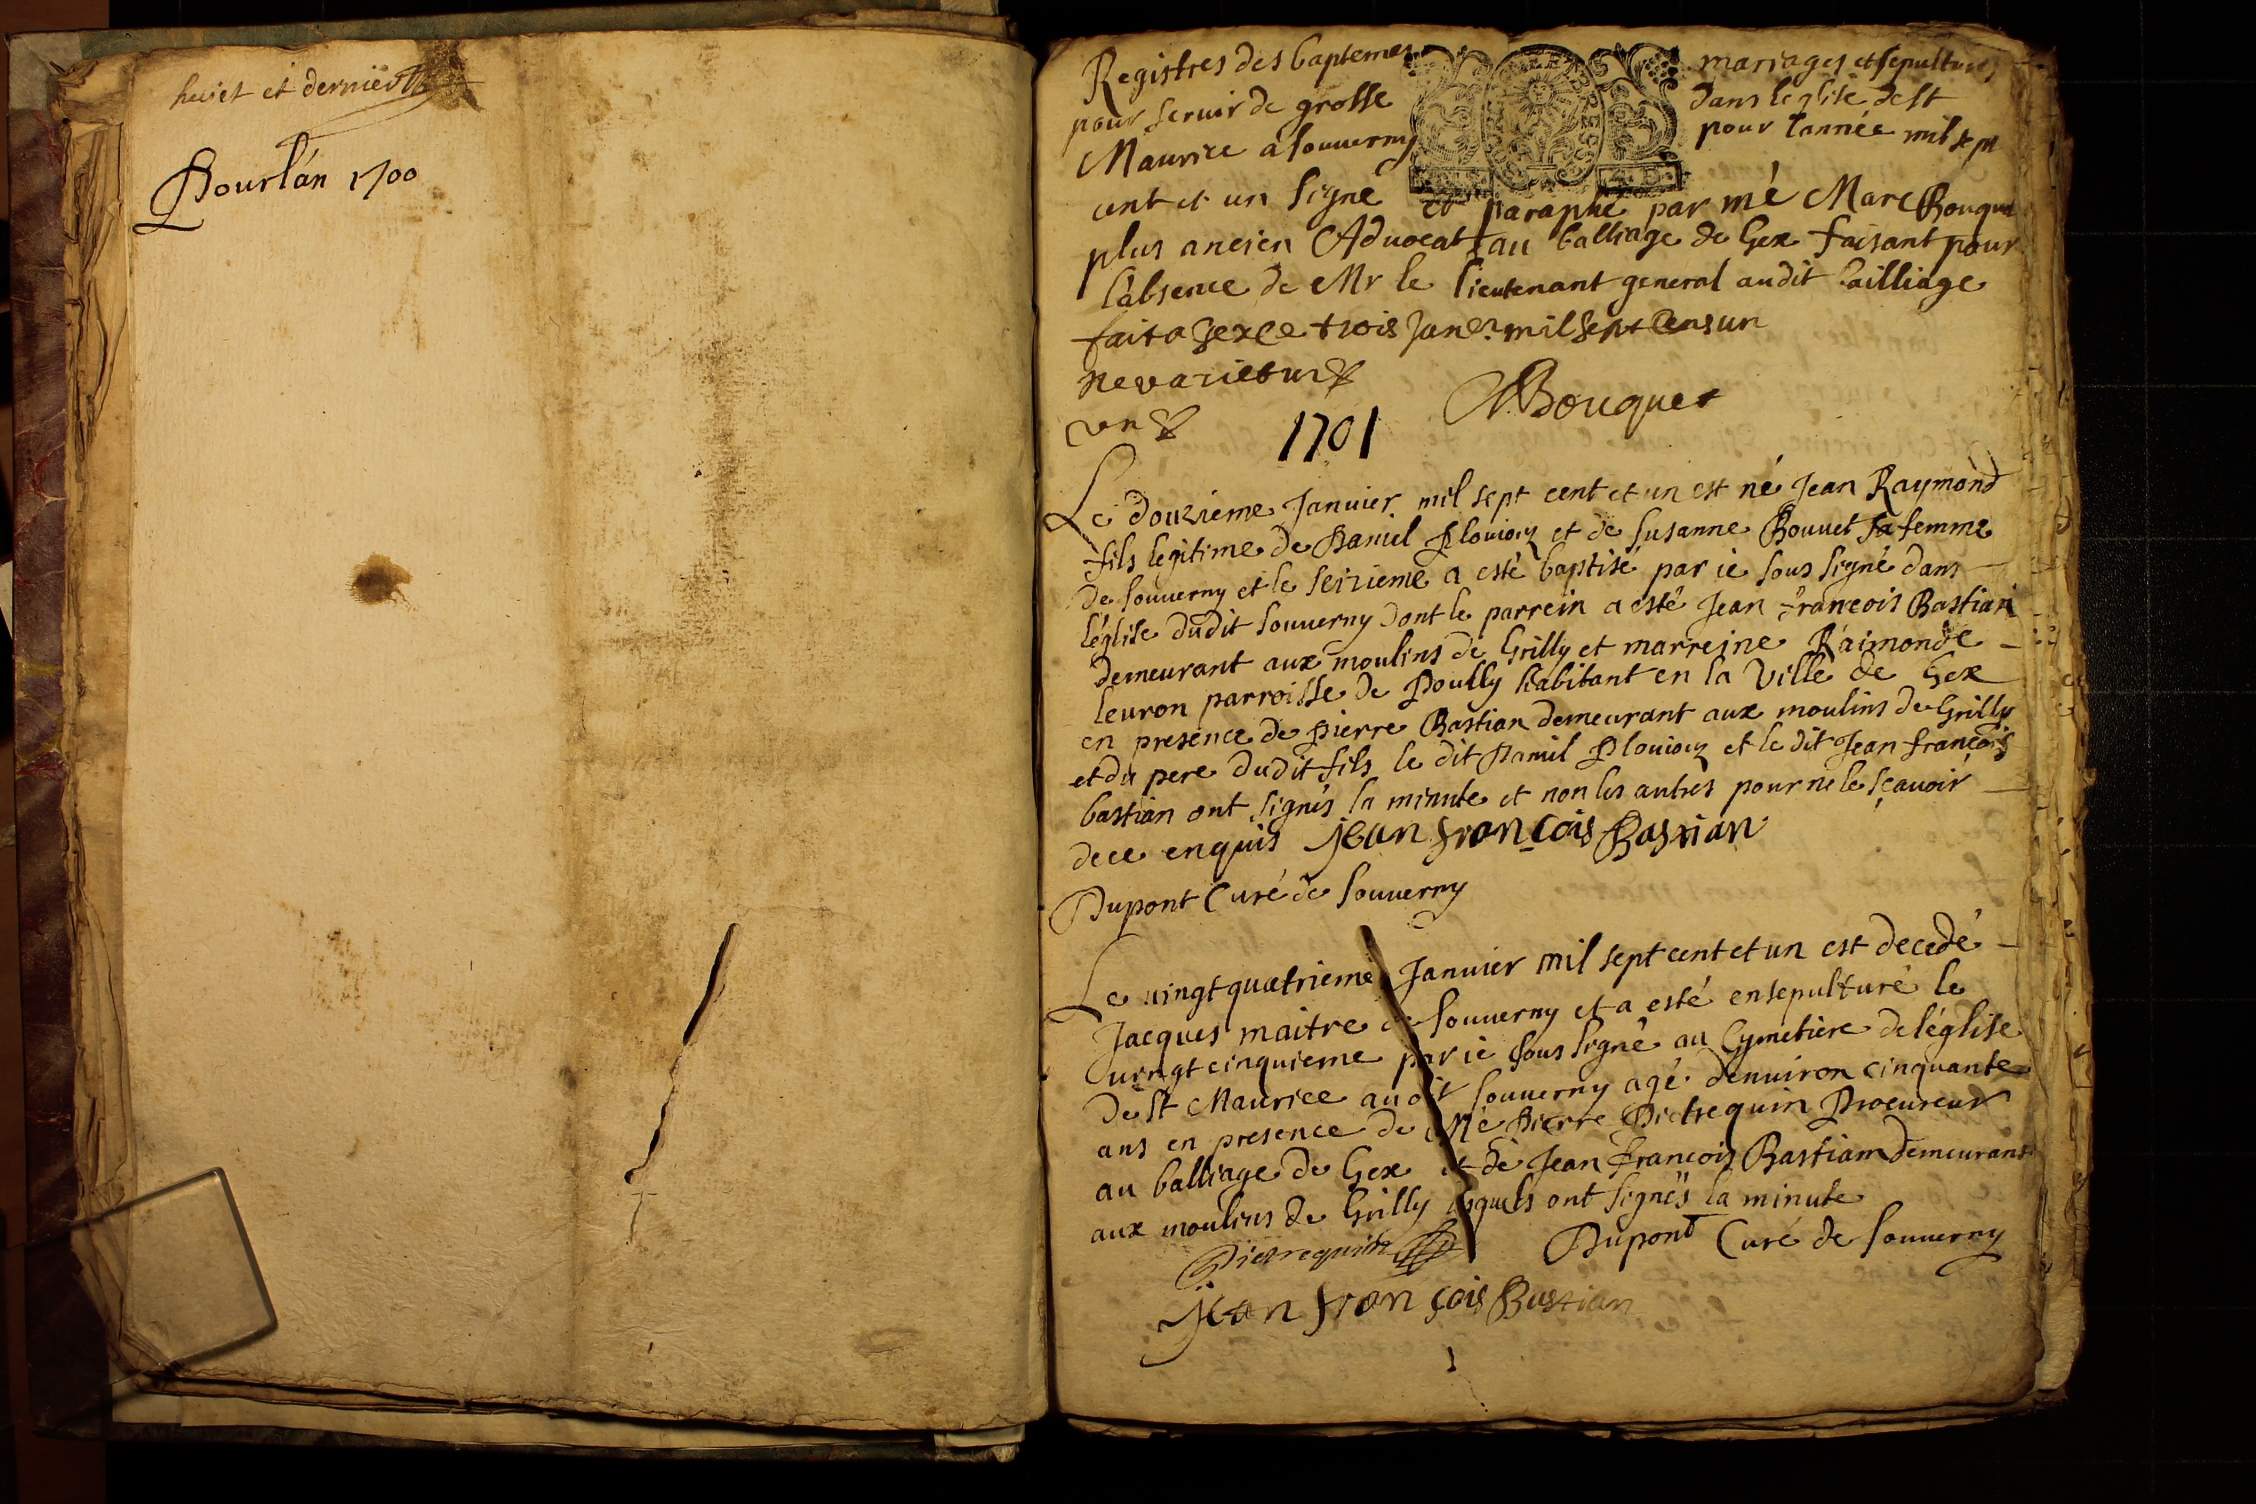 huiet et derniere
Pour l'an 1700
Registres des baptemes mariages et sepultures
pour servir de grosse dans leglise de St
Maurice a souuerny pour l'année mil sept
cent et un signé et paraphé par mé Marc Bouquet
plus ancien Aduocat au balliage de Gex faisant pour
l'absence de Mr le lieutenant general audit bailliage
fait a Gex ce trois Janer mil sept Cens un
ne varietur
un MBouquet
1701
Le douzieme Januier mil sept cent et un est né Jean Raymond
fils legitime de Daniel Plouiouz et de Susanne Bouuet sa femme
de souuerny et le seizieme a esté baptisé par ie sous signé dans
léglise dudit souuerny dont le parrein a esté Jean francois Bastian
demeurant aux moulins de Grilly et marreine Raimonde
leuron parroisse de Poully habitant en la Ville de Gex
en presence de pierre Bastian demeurant aux moulins de Grilly
et du pere dudit fils le dit Daniel Plouiouz et le dit Jean françois
bastian ont signés la minute et non les autres pour ne le sçauoir
de ce enquis jean françois Bastian
Dupont Curé de souuerny
Le uingt quatrieme Januier mil sept cent et un est decedé
Jacques maitre de souuerny et a esté ensepulturé le
uingt cinquieme par ie sous signé au Cymetiere de léglise
de St Maurice audit souuerny agé denuiron cinquante
ans en presence de Mé Pierre Dietrequin Procureur
au balliage de Gex et de Jean francois Bastian demeurant
aux moulins de Grilly lesquels ont signés la minute
Dietrequin Dupont Curé de souuerny
jean françois Bastian
1